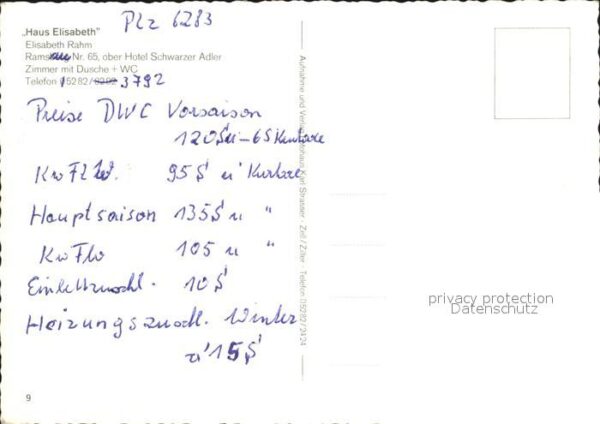 Plz 6283
„Haus Elisabeth"
Elisabeth Rahm
Ramsau Nr. 65, ober Hotel Schwarzer Adler
Zimmer mit Dusche + WC
Telefon 05282/ 3792
Preise DWC Vorsaison
120S u - 6S Kurtaxe
KwFl W. 95S u Kurtaxe
Hauptsaison 135S u "
KwFlw 105 u "
Einbettzuschl. 10S
Heizungszuschl. Winter
a' 15S
Aufnahme und Verlag Fotohaus Karl Strasser - Zell/Ziller - Telefon 05282/2424
privacy protection
Datenschutz
9